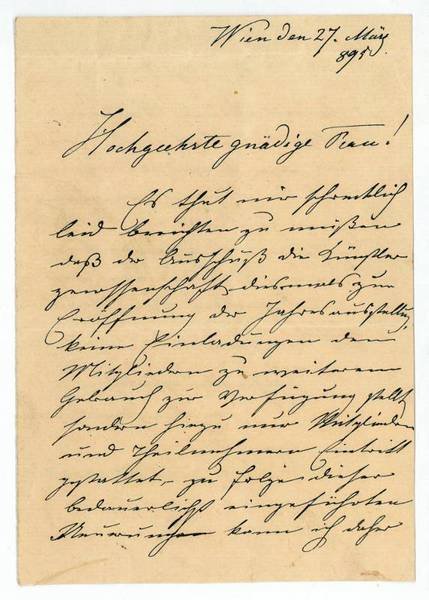 Wien den 27. März
895.
Hochgeehrte gnädige Frau!
Es thut mir schrecklich
leid berichten zu müßen
daß der Ausschuß die Künstler
genossenschaft diesmals zur
Eröffnung der Jahresausstellung
keine Einladungen den
Mitgliedern zu weiterem
Gebrauch zur Verfügung stellt
sondern hiezu nur Mitglieder
und Theilnehmern Eintritt
gestattet – zu folge dieser
bedauerlichst eingeführten
Neuerung kann ich daher